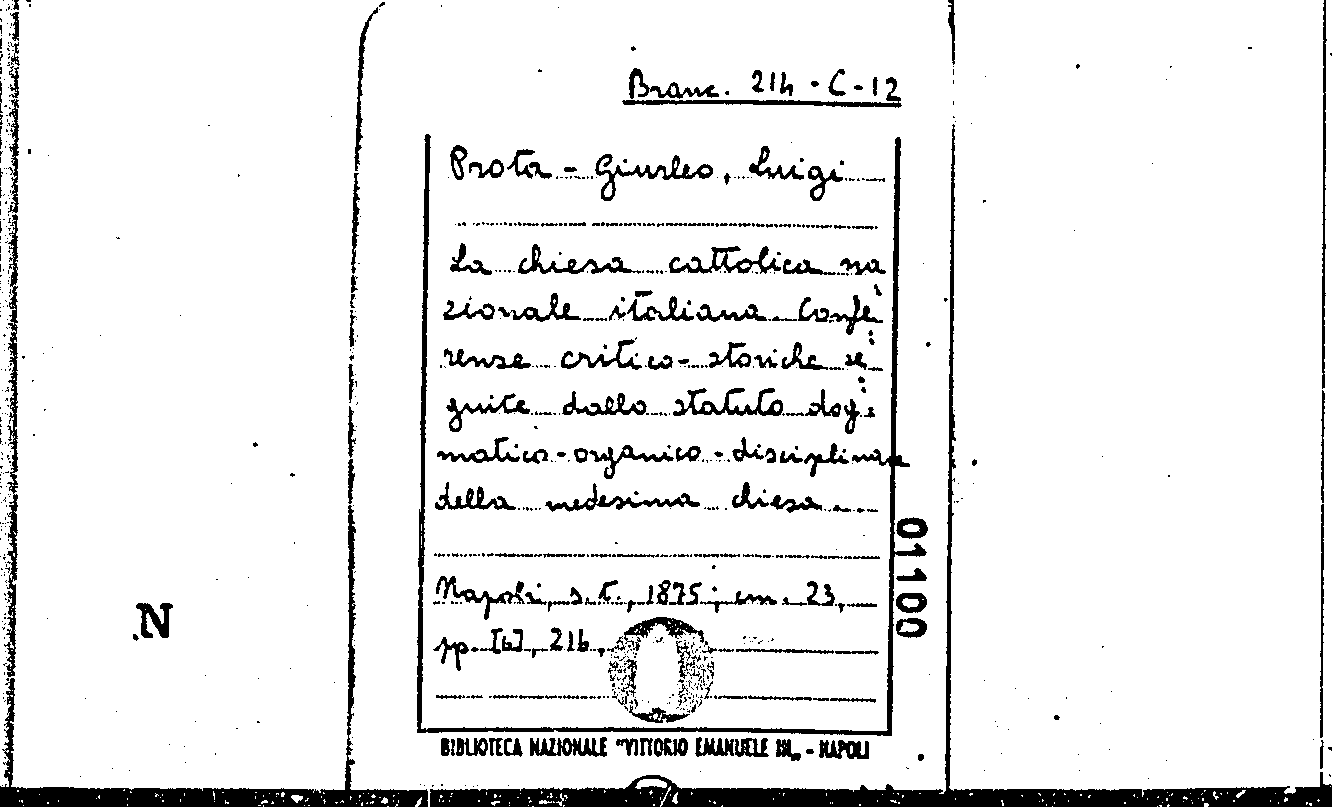 Branc. 214 - C - 12
Prota - Giurleo, Luigi
La chiesa cattolica na
zionale italiana. Confe
renze critico-storiche se
guite dallo statuto dog
matico-organico-disciplinare
della medesima chiesa ...
Napoli, s. t., 1875; cm. 23,
pp. [6], 216.
01100
N
BIBLIOTECA NAZIONALE "VITTORIO EMANUELE III„ - NAPOLI